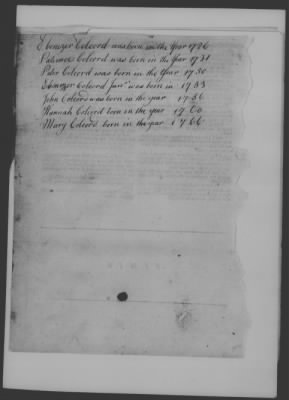 Ebenezer Colcord was born in the Year 1726
Colcord was born in the Year 1731
Peter Colcord was born in the Year 1730
Ebenezer Colcord Junr was born in 1753
John Colcord was born in the year 1756
Hannah Colcord born in the year 1760
Mary Colcord born in the year 1766